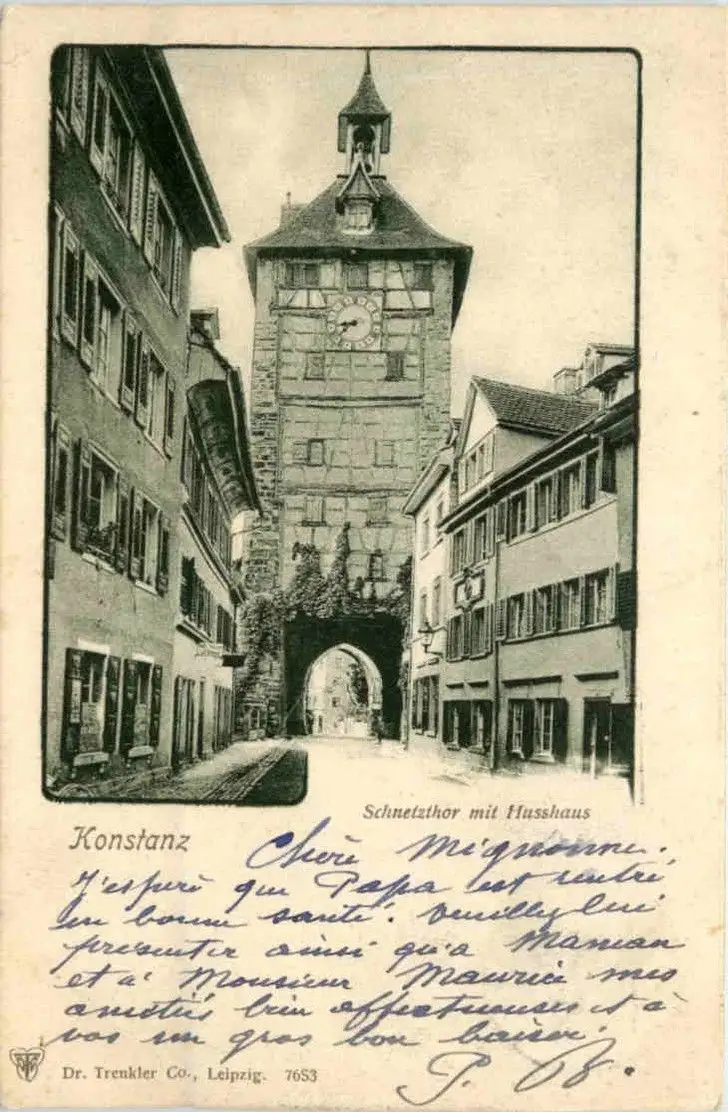 Schnetzthor mit Husshaus
Konstanz
Chère Mignonne.
J'espère que Papa est rentré
en bonne santé. Veuillez lui
présenter ainsi qu'a Maman
et à Monsieur Maurice mes
amitiés bien affectueuses et à
vos un gros bon baiser.
P. B.
Dr. Trenkler Co., Leipzig. 7653